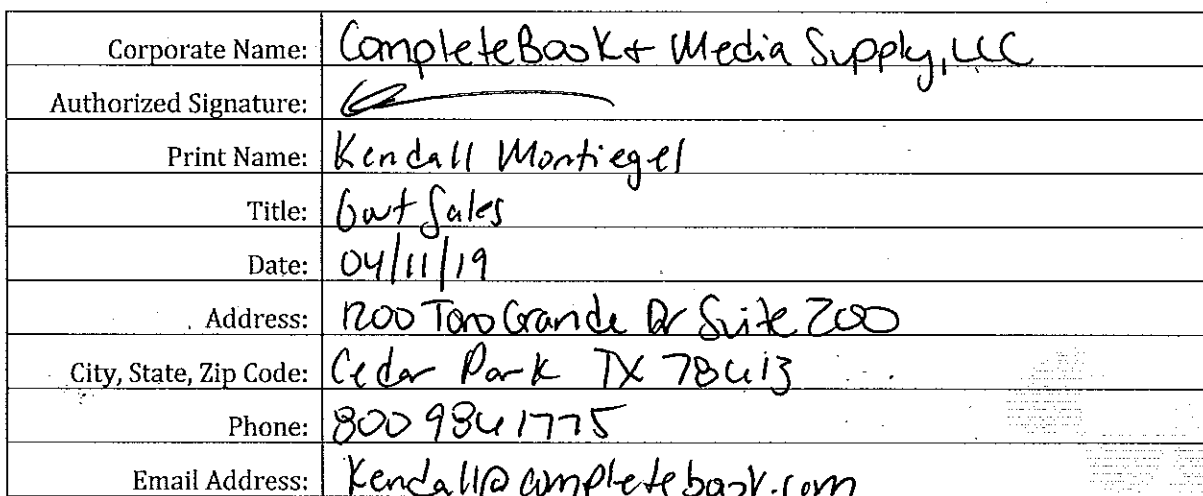 Corporate Name: Complete Book + Media Supply, LLC
Authorized Signature:
Print Name: Kendall Montiegel
Title: Govt Sales
Date: 04/11/19
Address: 1200 Toro Grande Dr Suite 200
City, State, Zip Code: Cedar Park TX 78613
Phone: 800 986 1775
Email Address: Kendall@completebook.com